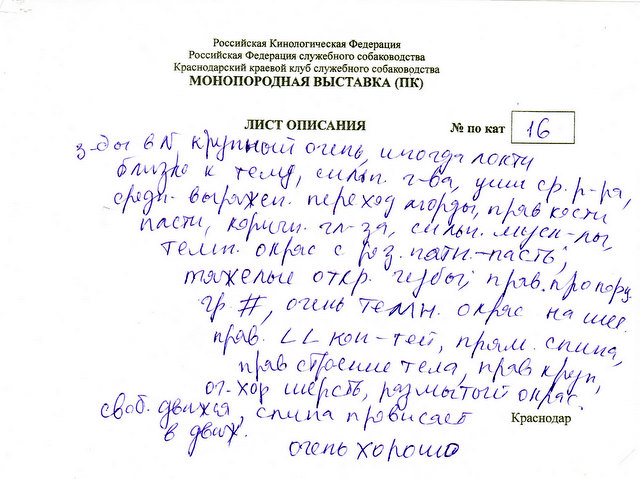 Российская Кинологическая Федерация
Российская Федерация служебного собаководства
Краснодарский краевой клуб служебного собаководства
МОНОПОРОДНАЯ ВЫСТАВКА (ПК)
ЛИСТ ОПИСАНИЯ № по кат 16
з-ды в N крупный очень, иногда локти
близко к телу, сильн. г-ва, уши ср. р-ра,
средн. выражен. переход морды, прав кости
пасти, коричн. гл-за, сильн. муск-лы,
темн. окрас с роз. пятн.-пасть,
тяжелые откр. губы, прав. пропорц.
гр. #, очень темн. окрас на шее.
прав. LL кон-тей, прям. спина,
прав строение тела, прав круп,
от-хор шерсть, размытый окрас.
своб. движ, спина провисает
в движ.
очень хорошо
Краснодар